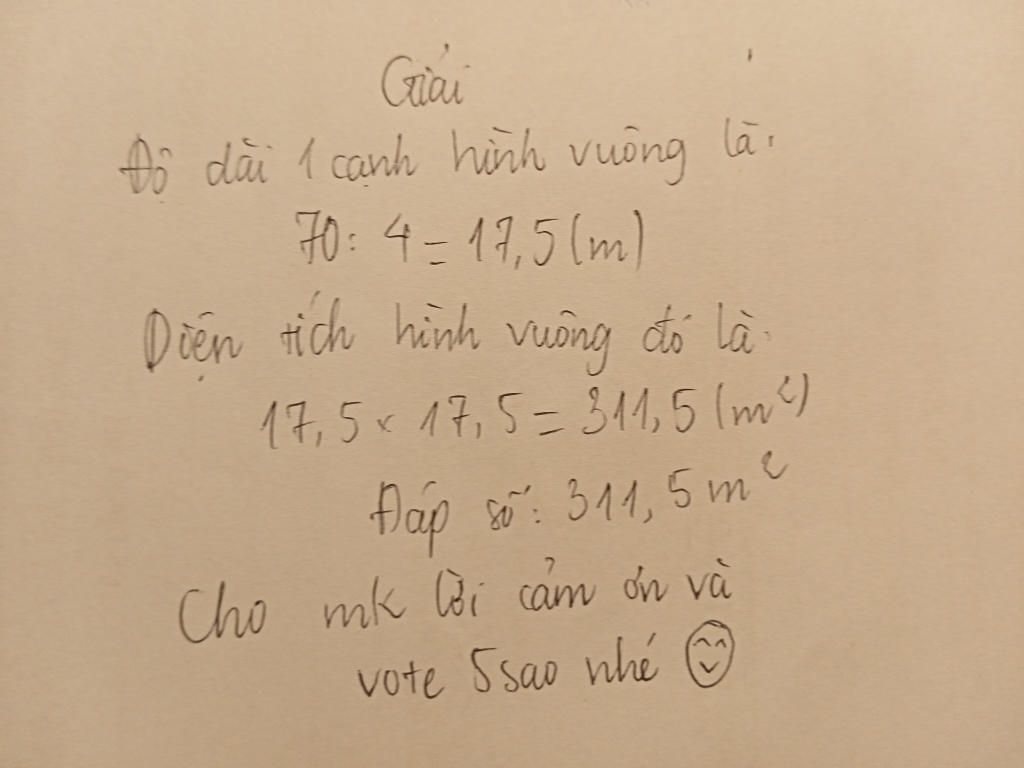 Giải
Độ dài 1 cạnh hình vuông là:
70: 4 = 17,5 (m)
Diện tích hình vuông đó là:
17,5 x 17,5 = 311,5 (m²)
Đáp số: 311,5 m²
Cho mk lời cảm ơn và
vote 5 sao nhé